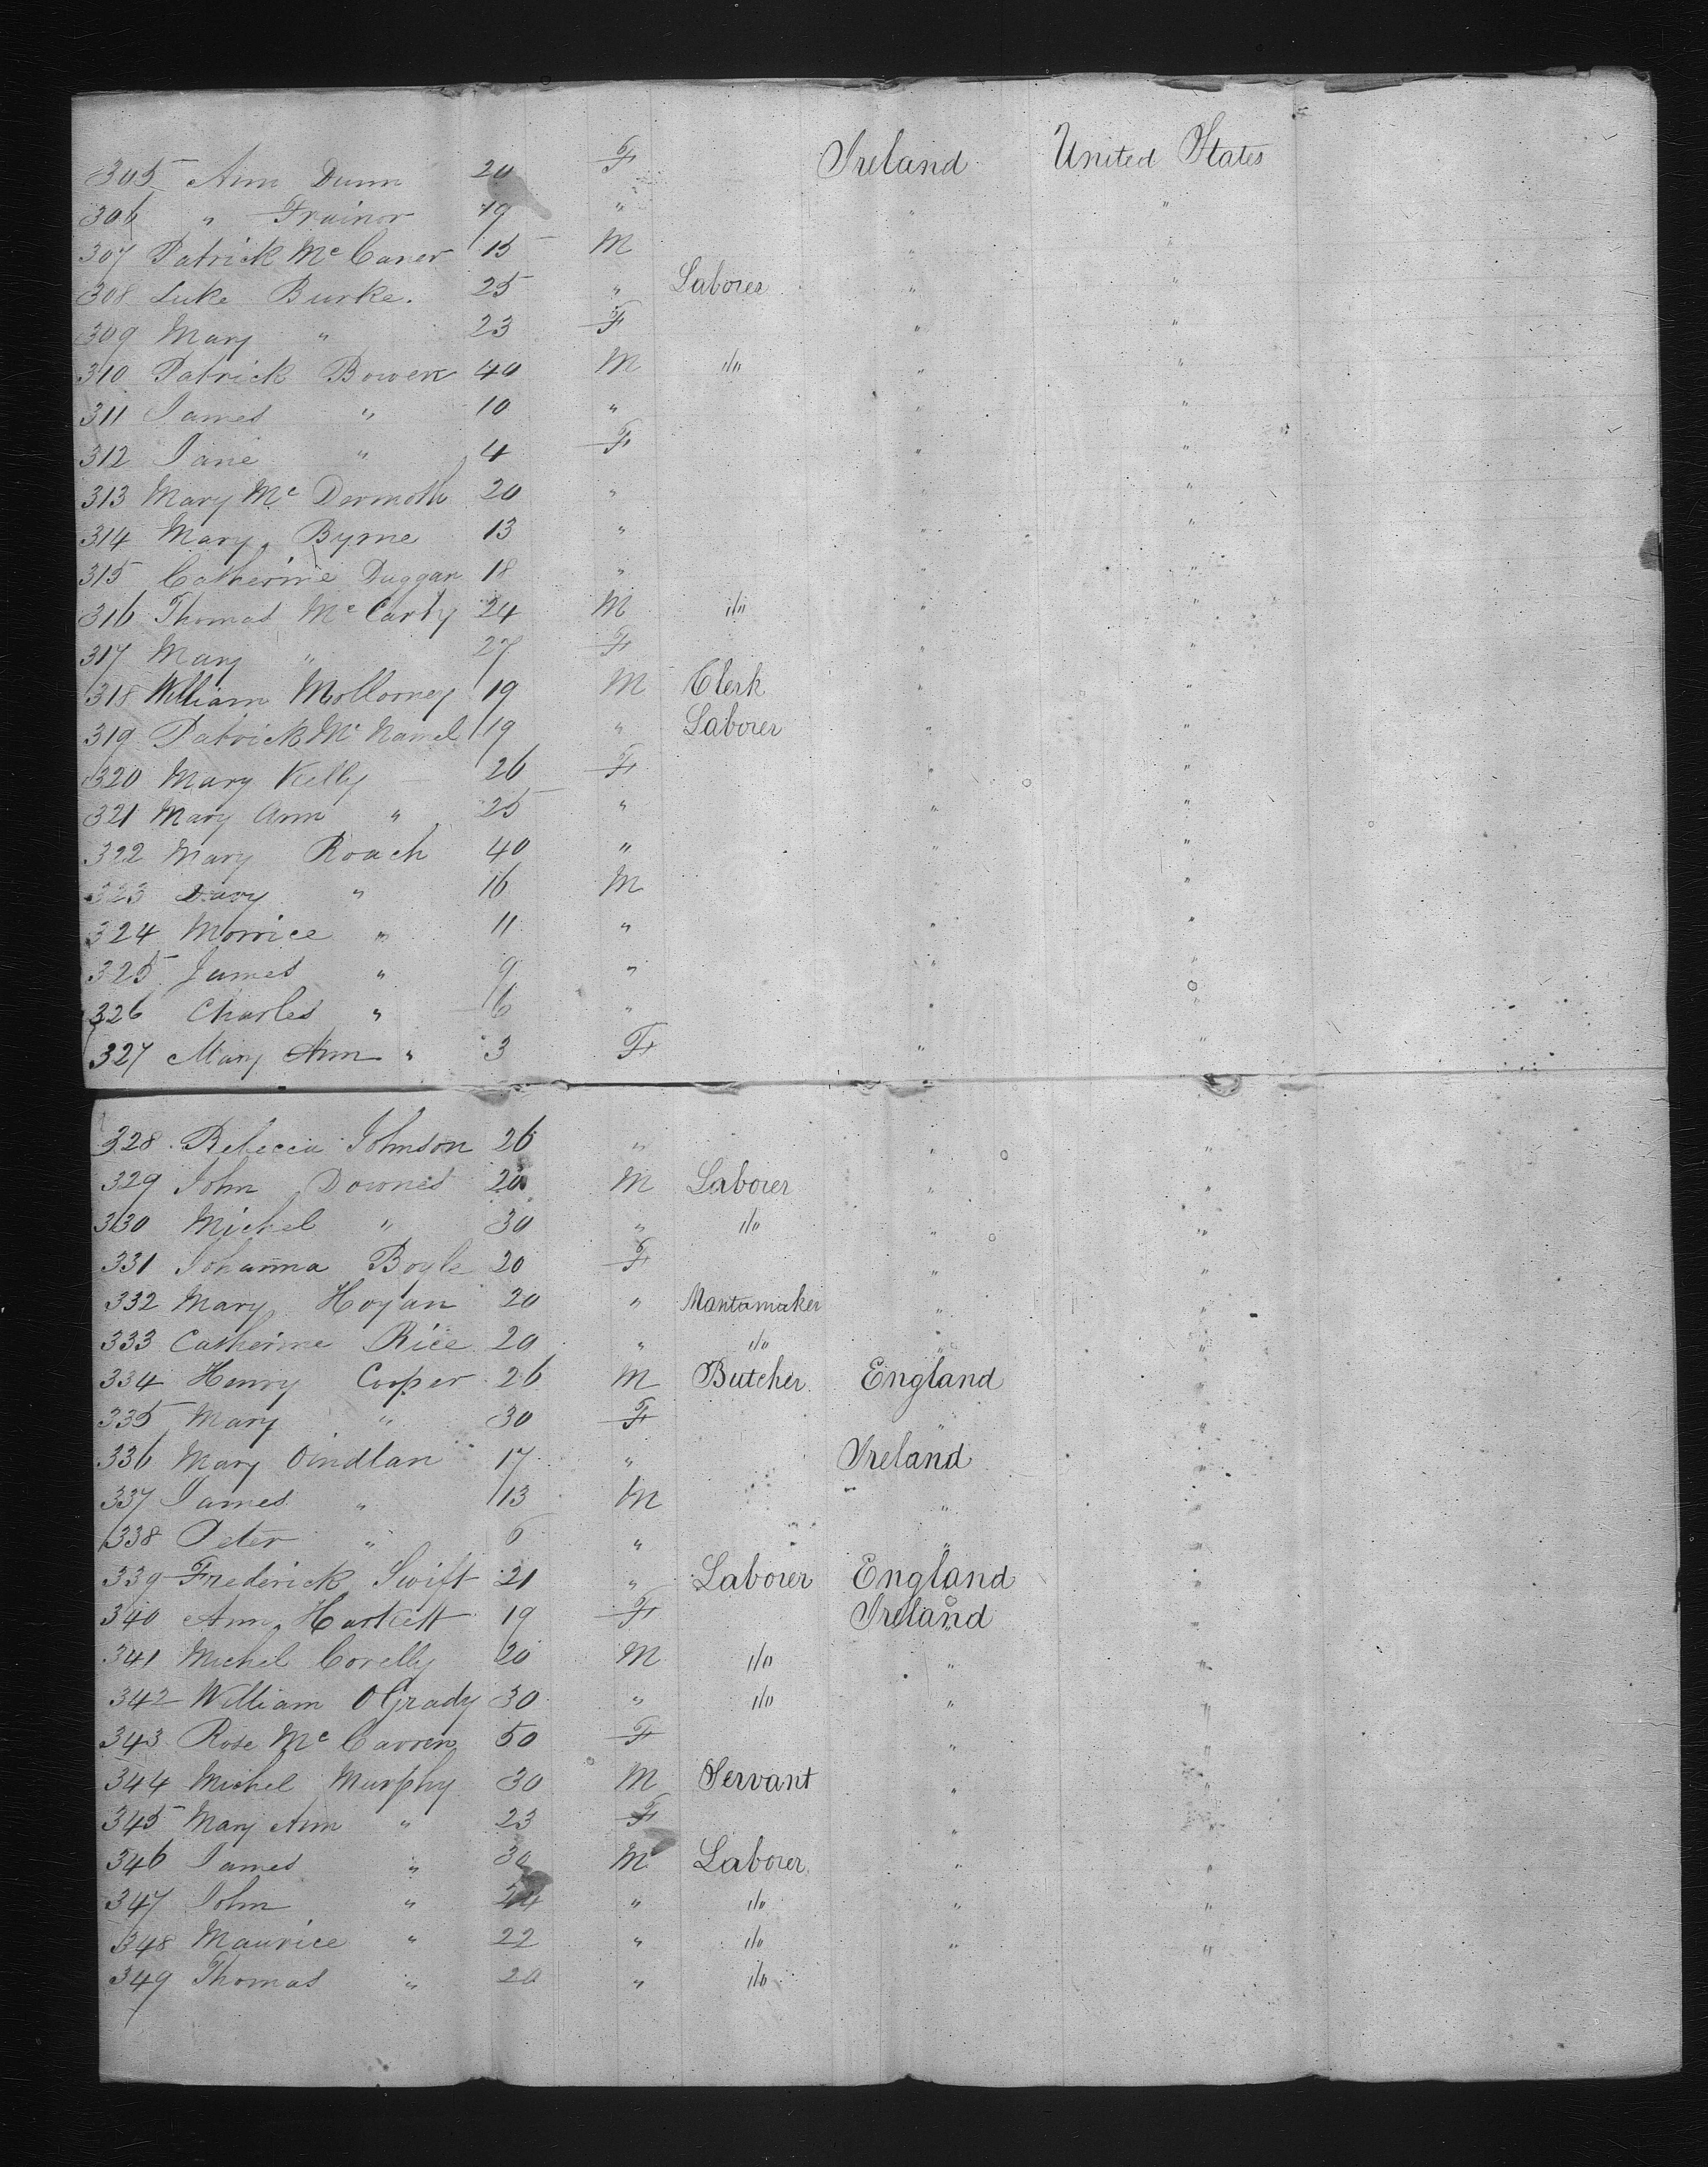 305 Ann Dunn 20 F Ireland United States
306 " Trainor 19 " " "
307 Patrick Mc Caner 15 M " "
308 Luke Burke. 25 " Laborer " "
309 Mary " 23 F " "
310 Patrick Bowen 40 M do " "
311 James " 10 " " "
312 Jane " 4 F " "
313 Mary Mc Dermoth 20 " " "
314 Mary Byrne 13 " " "
315 Catherine Duggan 18 " " "
316 Thomas Mc Carty 24 M do " "
317 Mary " 27 F " "
318 William Molloney 19 M Clerk " "
319 Patrick Mc Namel 19 " Laborer " "
320 Mary Kelly 26 F " "
321 Mary Ann " 25 " " "
322 Mary Roach 40 " " "
323 Davy " 16 M " "
324 Morrice " 11 " " "
325 James " 9 " " "
326 Charles " 6 " " "
327 Mary Ann " 3 F " "
328 Rebecca Johnson 26 " " "
329 John Downes 20 M Laborer " "
330 Michel " 30 " do " "
331 Johanna Boyle 20 F " "
332 Mary Hogan 20 " Mantamaker " "
333 Catherine Rice 20 " do " "
334 Henry Cooper 26 M Butcher England "
335 Mary " 30 F " "
336 Mary Oindlan 17 " Ireland "
337 James " 13 M " "
338 Peter " 6 " " "
339 Frederick Swift 21 " Laborer England "
340 Ann Harkett 19 F Ireland "
341 Michel Corelly 20 M do " "
342 William O Grady 30 " do " "
343 Rose Mc Carren 50 F " "
344 Michel Murphy 30 M Servant " "
345 Mary Ann " 23 F " "
346 James " 30 M Laborer " "
347 John " 24 " do " "
348 Maurice " 22 " do " "
349 Thomas " 20 " do